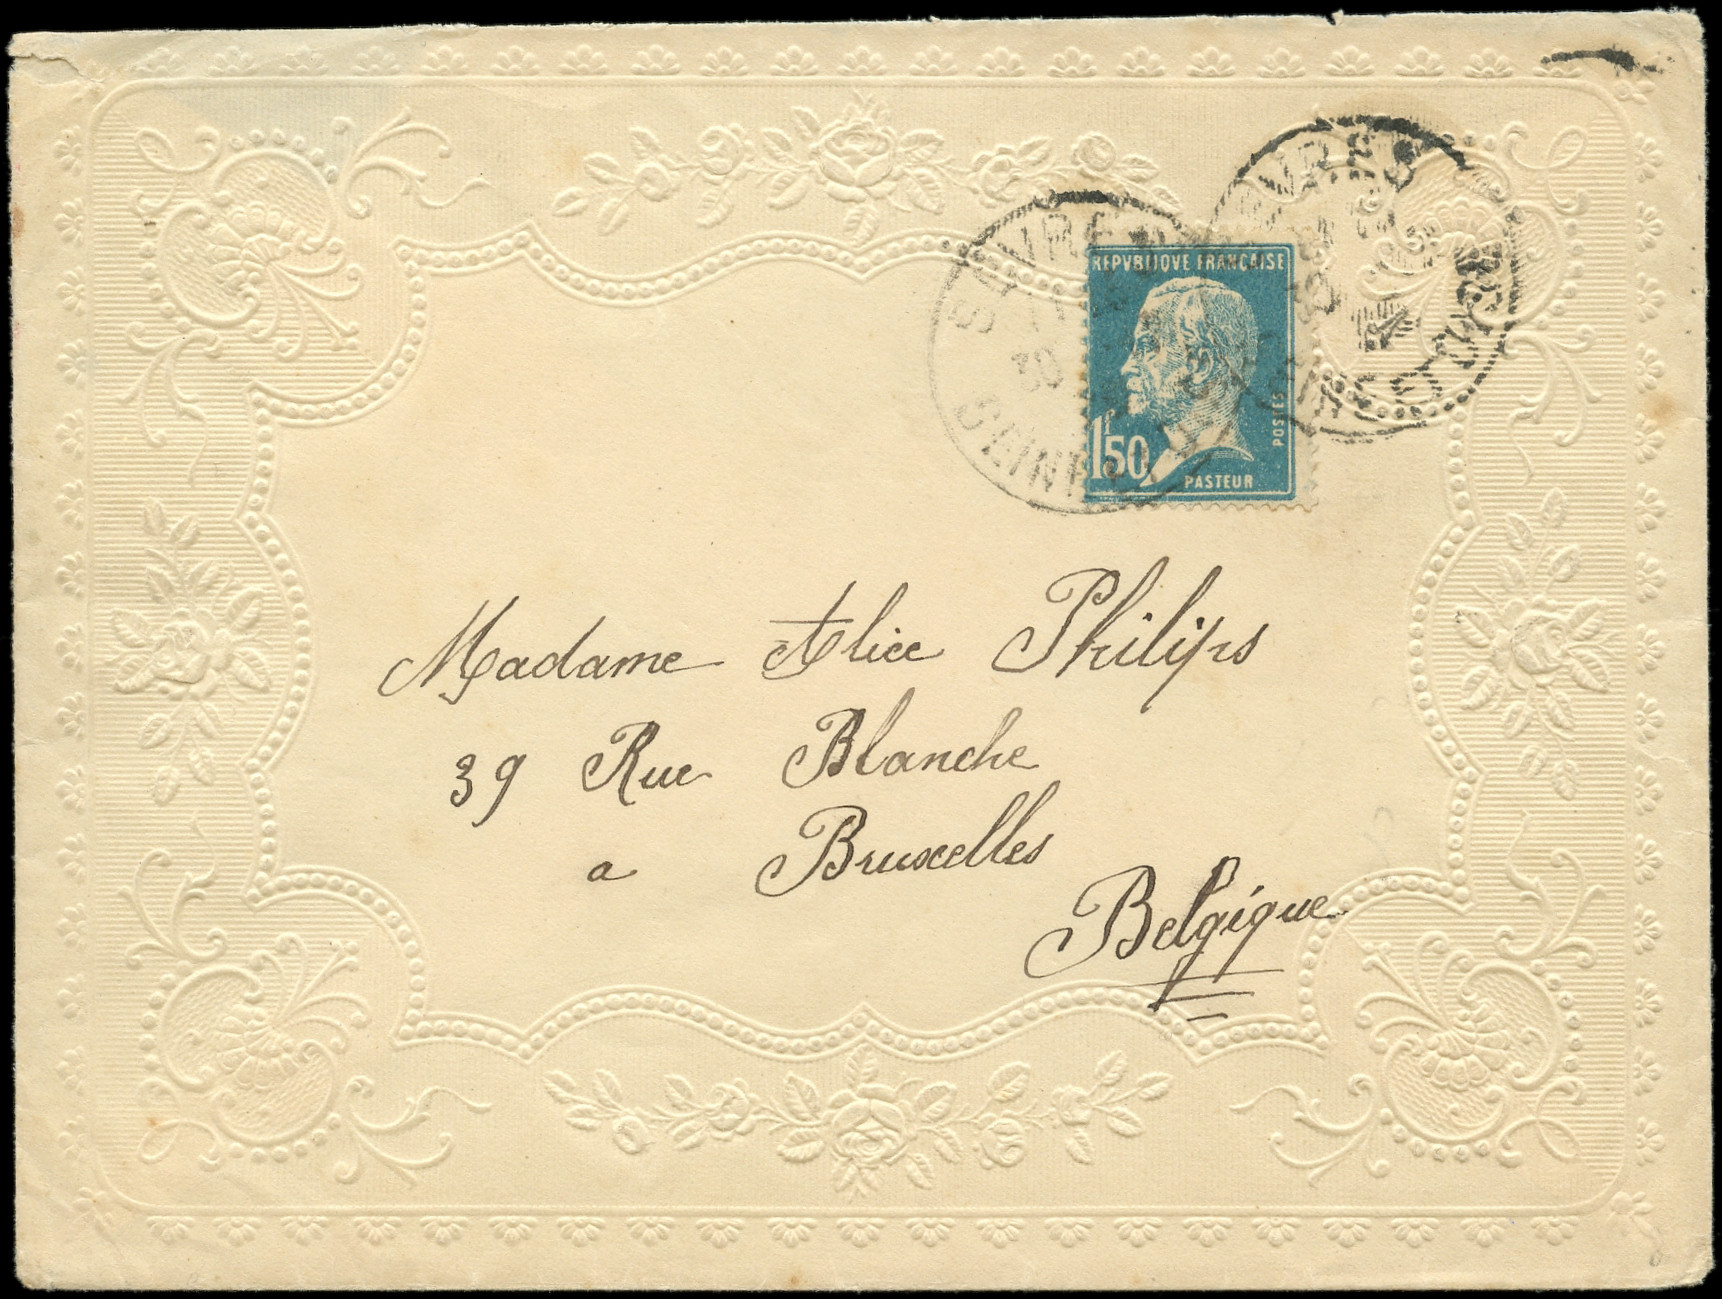 SEVRES
30
SEINE
REPVBLIQVE FRANÇAISE
1F50
POSTES
PASTEUR
Madame Alice Philips
39 Rue Blanche
a Bruxelles
Belgique